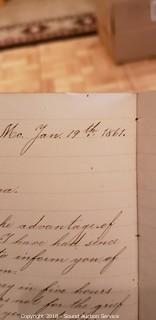 Mo. Jan. 19th. 1861.
a.
ke advantage of
I have had since
to inform you of
n.
ey in five hours
for the
Copyright 2018 - Sound Auction Service